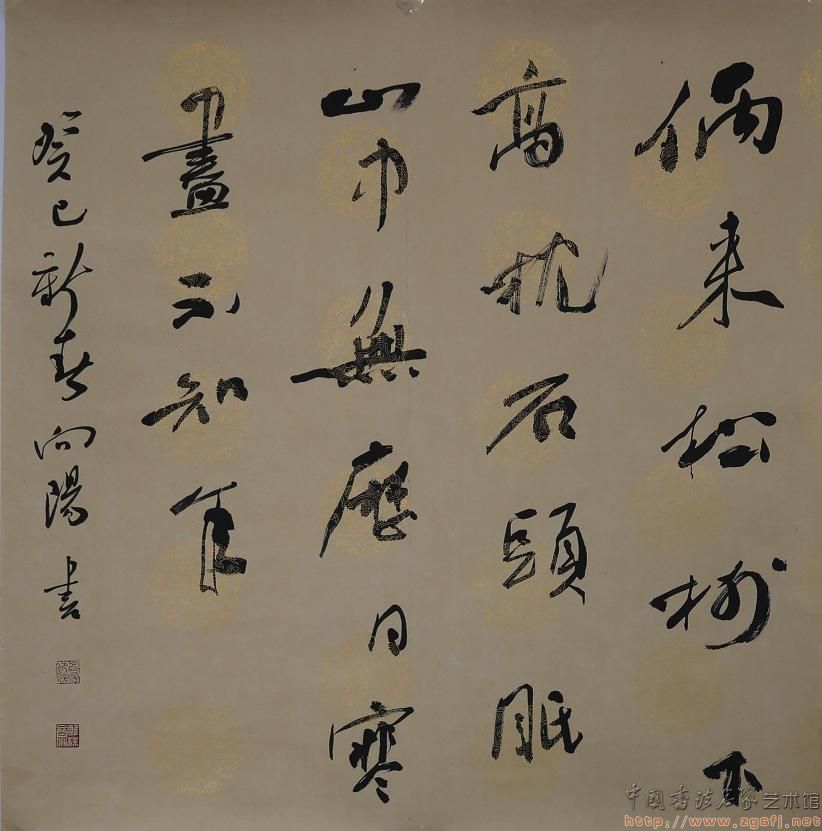 偶来松树下
高枕石頭眠
山中無曆日寒
盡不知年
癸巳新春向陽書
中国书法名家艺术馆
http://www.zgsfj.net